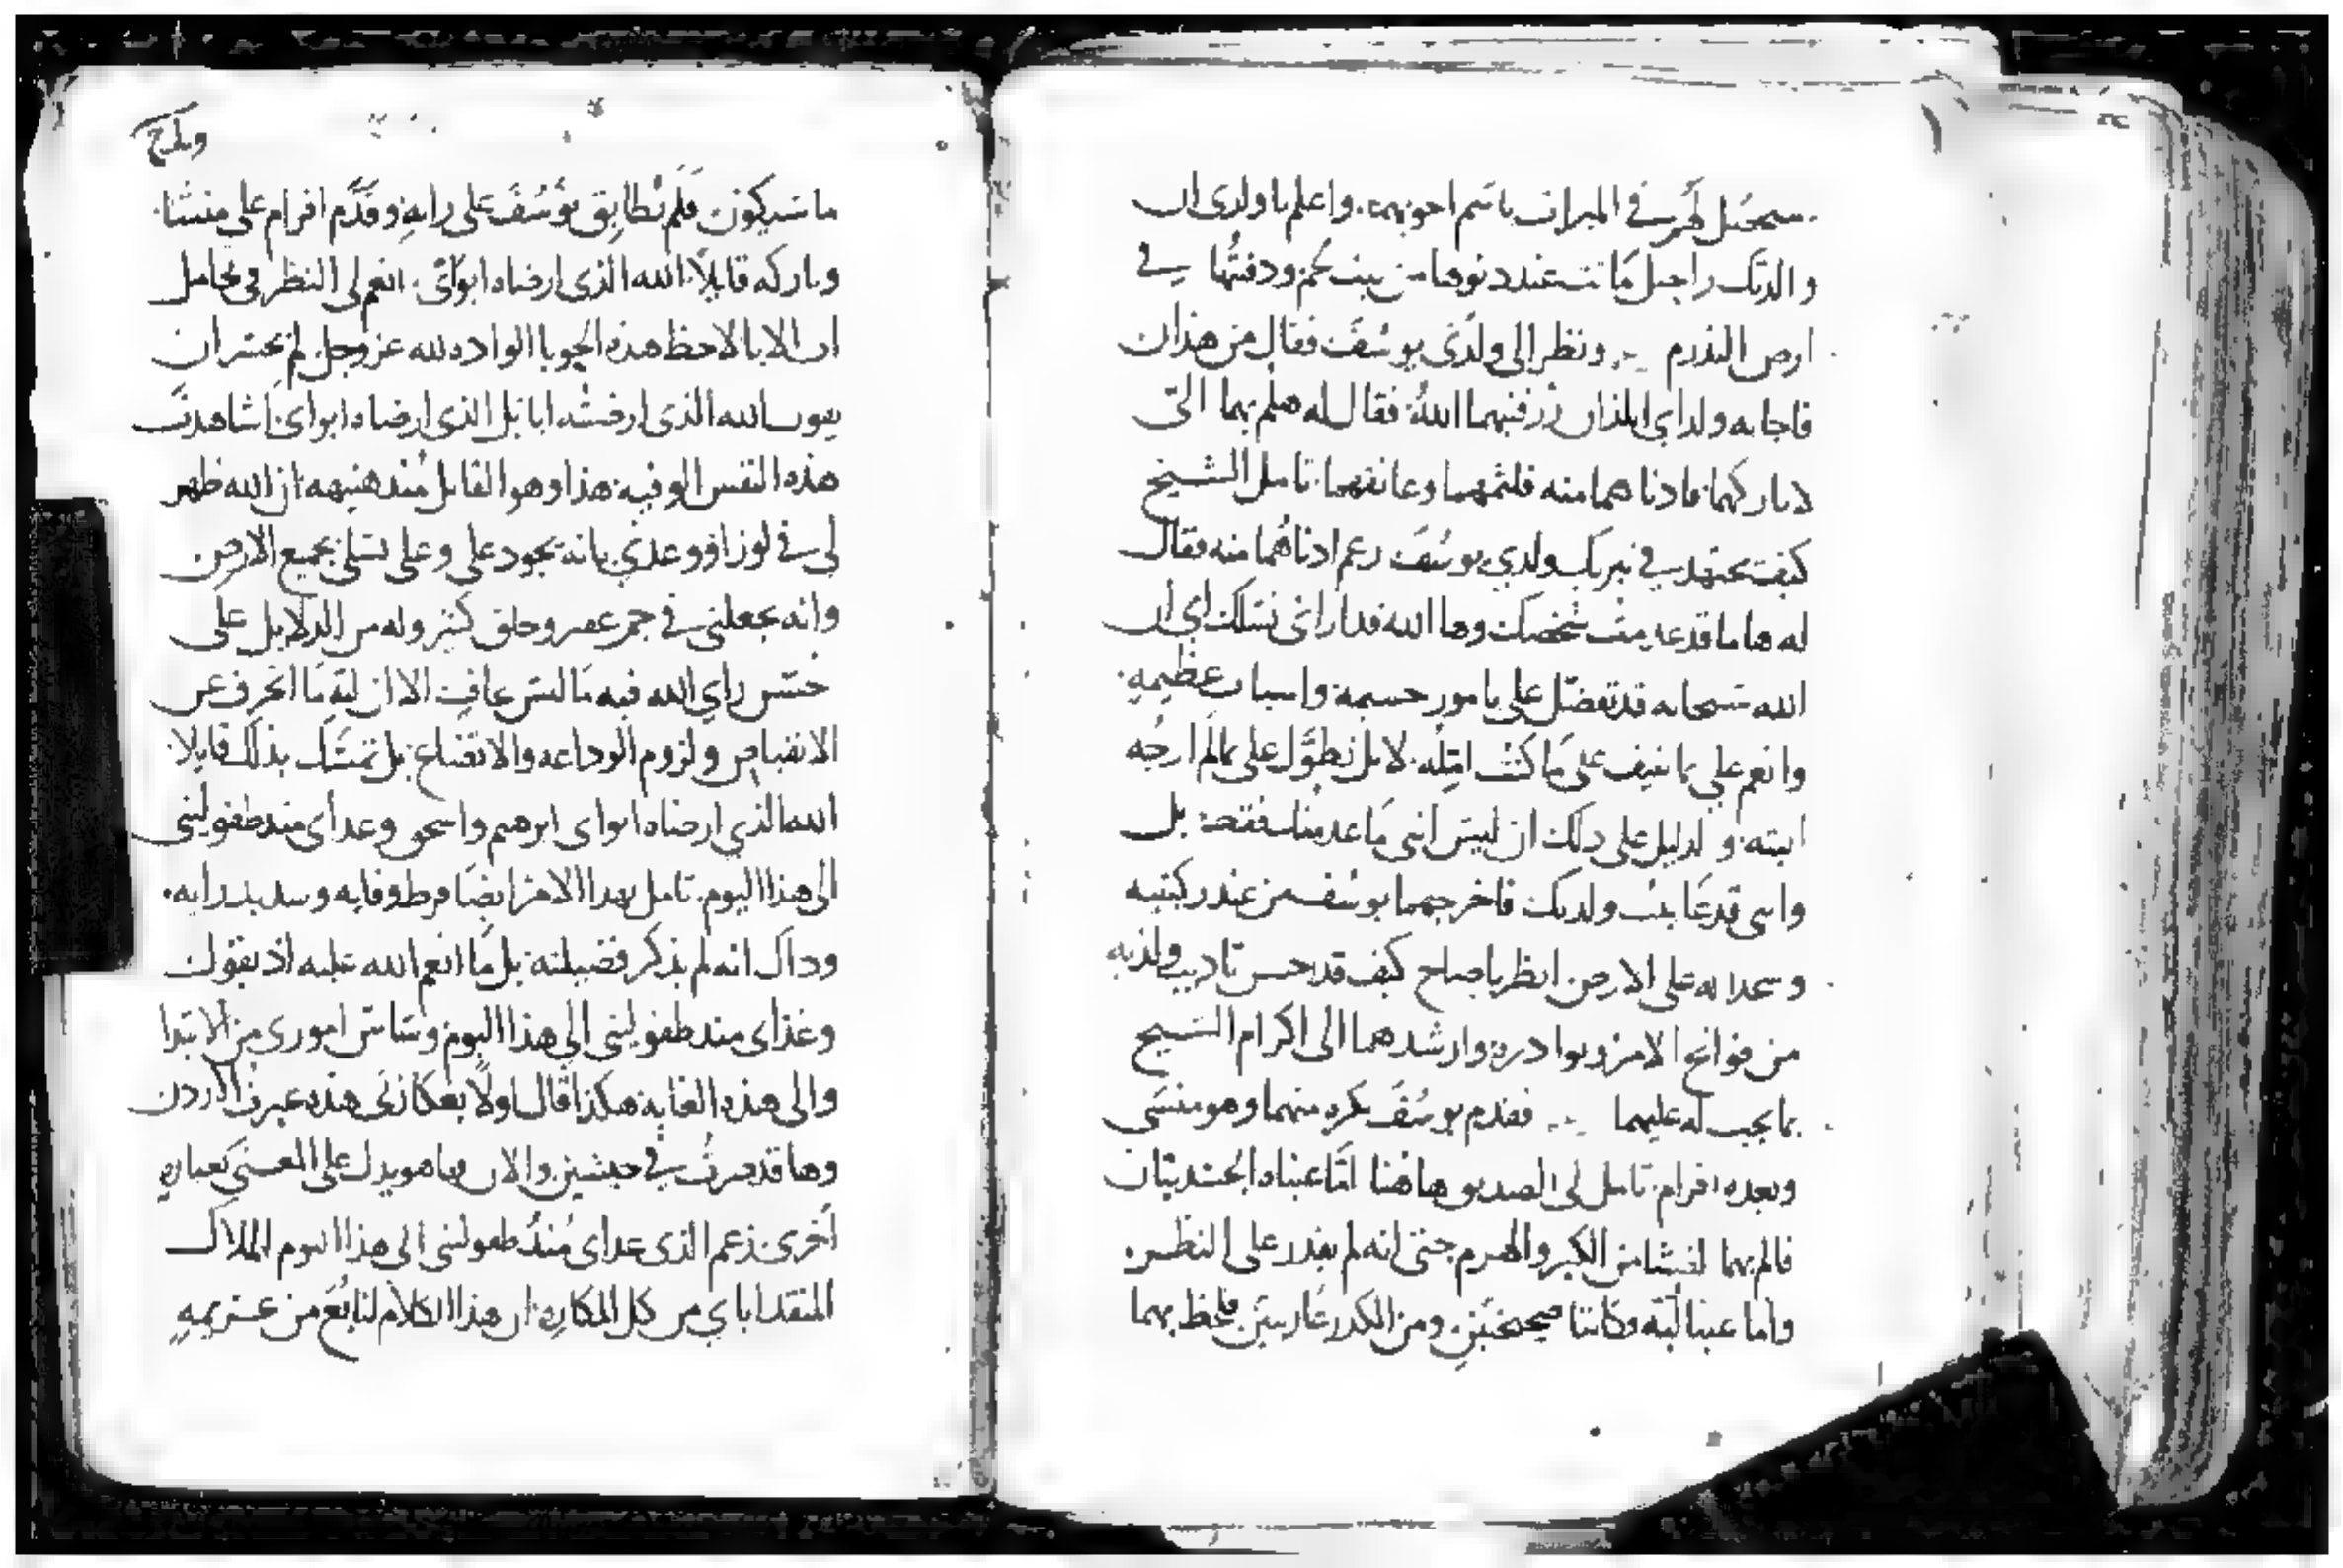 سيجعل لهم في الميراث باسم اخوتهما. واعلم يا ولدي ان
والدتك راحيل ماتت عند دنوها من بيت لحم ودفنتها في
ارض البذرم ونظر الى ولدى يوسف فقال من هذان
فاجابه ولداي اللذان رزقنيهما الله فقال له هلم بهما الى
لاباركهما فادناهما منه فلثمهما وعانقهما تامل الشيخ
كيف يجتهد في تبريك ولدي يوسف زعم ادناهما منه فقال
له ها ما قد عدمت شخصك وها الله قد اراني نسلك اي ان
الله سبحانه قد تفضل علي بامور جسيمه واسباب عظيمه
وانعم علي بما ينيف على ما كنت امله لا بل تطول علي بما لم ارجه
ابته و الدليل على دلك ان ليس انني ما عدمتك فقط بل
واني قد عاينت ولديك فاخرجهما يوسف من عند ركبتيه
وسجدا له على الارض انظر يا صاح كيف قد احسن تاديب ولديه
من فواتح الامر وبوادره وارشدهما الى اكرام الشيخ
بما يجب له عليهما فقدم يوسف بكره منهما وهو منسى
وبعده افرام تامل لي الصديق هاهنا اما عيناه الجسديتان
فالم بهما لغشا من الكبر والهرم حتى انه لم يقدر على النظر
واما عينا لبه وكانتا صحيحتين ومن الكدر عاريتين فلحظ بهما
ما سيكون فلم يطابق يوسف على رايه وقدم افرام على منسا
وباركه قايلا الله الذى ارضاه ابواى انعم لي النظر في تحامل
ان الابا لاحظ هذه الحوبا الواده لله عز وجل لم يحسر ان
يقول الله الذى ارضيته ابا بل الذى ارضاه ابواى شاهدت
هذه النفس الوفيه هذا وهو القايل منذ هنيهه ان الله ظهر
لي في لوزا ووعدني بانه يجود علي وعلى نسلي بجميع الارض
وانه يجعلني في جم غفير وخلق كثير وله من الدلايل على
حسن راي الله فيه ما ليس عاف الا ان لبه ما انحرف عن
الانقباض ولزوم الوداعه والاتضاع بل تمسك بذلك قايلا
الله الذي ارضاه ابواى ابرهيم واسحق وغداى منذ طفوليتي
الى هذا اليوم تامل بهدا الامر ايضا فرط وفايه وسديد رايه
وداك انه لم يذكر فضيلته بل ما انعم الله عليه اذ يقول
وغذاى منذ طفوليتي الى هذا اليوم وساس اموري من الابتدا
والى هذه الغايه هكذا قال اولا بعكازتى هذه عبرت الاردن
وها قد صرت في جيشين والان بما هو يدل على المعنى كعباره
اخرى زعم الذى غداى منذ طفوليتي الى هذا اليوم الملاك
المنقد اياي من كل المكاره ان هذا الكلام لنابع من عزيمه